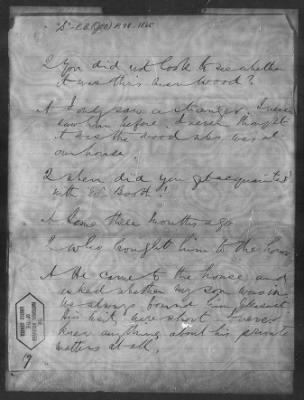 "S" R.B. (JAO) P. 78. 1865
Q You did not look to see whether
it was this man Wood?
A I only saw a stranger. I never
saw him before. I never thought
it was the Wood who was at
our house.
Q When did you get acquainted
with Booth?
A Some three months ago
Q Who brought him to the house
A He came to the house and
asked whether my son was in
found him pleasant
his visit were short. I never
knew anything about his private
matters at all.
9